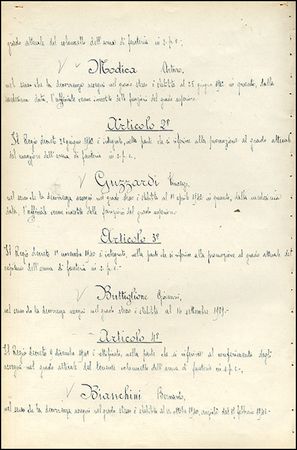 grado attuale del colonnello dell'arma di fanteria in s.p.e.-
Modica Arturo,
nel senso che la decorrenza assegni nel grado stesso è stabilita al 28 giugno 1940 in quanto, dalla
medesima data, l'ufficiale era investito delle funzioni del grado superiore.
Articolo 2º
Il Regio decreto 27 giugno 1940 è integrato, nella parte che si riferisce alla promozione al grado attuale
del maggiore dell'arma di fanteria in s.p.e.-
Guzzardi
nel senso che la decorrenza assegni nel grado stesso è stabilita al 1º aprile 1940 in quanto, dalla medesima
data, l'ufficiale era investito delle funzioni del grado superiore.
Articolo 3º
Il Regio Decreto 1º novembre 1940 è integrato, nella parte che si riferisce alla promozione al grado attuale del
capitano dell'arma di fanteria in s.p.e.-
Buttiglione Giovanni,
nel senso che la decorrenza assegni nel grado stesso è stabilita al 16 settembre 1939.-
Articolo 4º
Il Regio decreto 9 dicembre 1940 è rettificato, nella parte che si riferisce al conferimento degli
assegni nel grado attuale del tenente colonnello dell'arma di fanteria in s.p.e.-
Bianchini Bernardo,
nel senso che la decorrenza assegni nel grado stesso è stabilita al ottobre 1940, anziché dal 1º febbraio 1941.-